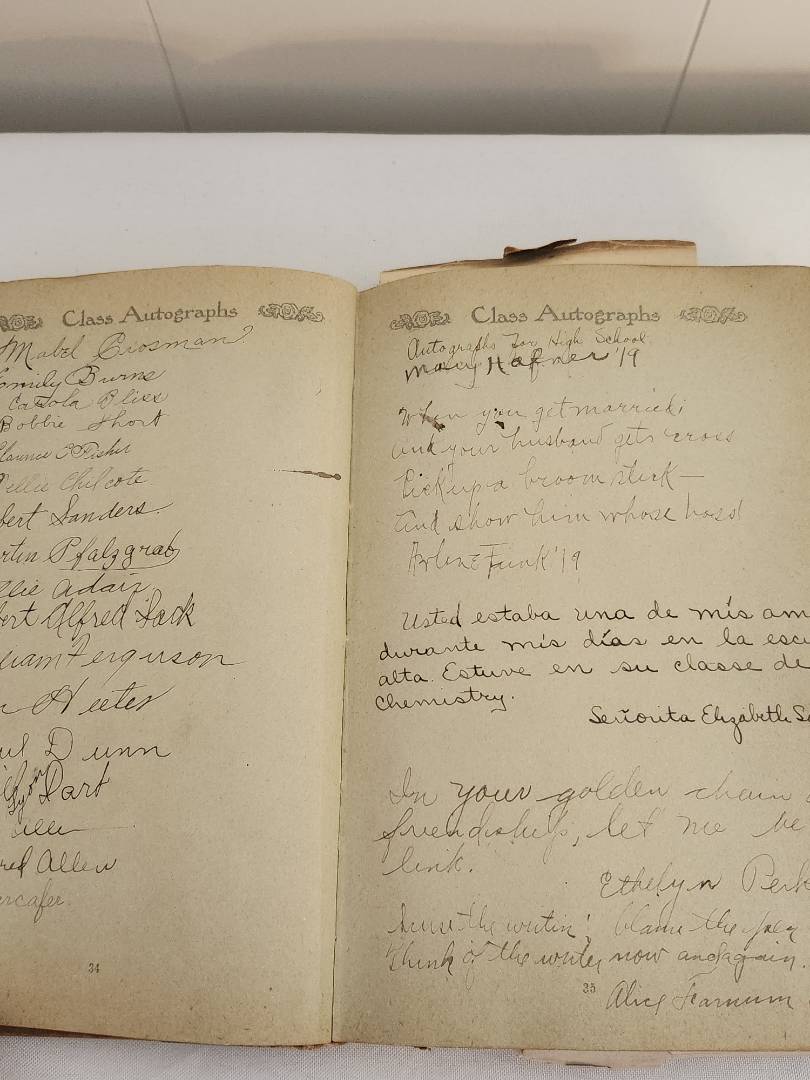 Class Autographs
Mabel Crosman
Emily Burns
Carola Bliss
Bobbie Short
Clarence Fisher
Nellie Chilcote
bert Sanders.
rtin Pfalzgraf
llie Adair
bert Alfred Sack
liam Ferguson
Heeter
ul Dunn
Dart
red Allen
ercafer.
34
Class Autographs
Autographs For High School
Macy Hafner '19
When you get married;
and your husband gets cross
Pick up a broom stick—
and show him whose boss!
Arline Funk '19
Usted estaba una de mís am
durante mís días en la escu
alta. Estuve en su classe de
chemistry.
Señorita Elizabeth
In your golden chain
friendship, let me be
link.
Ethelyn Perk
the writin', blame the pen
Think of the writer now and again.
35
Alice Farnum